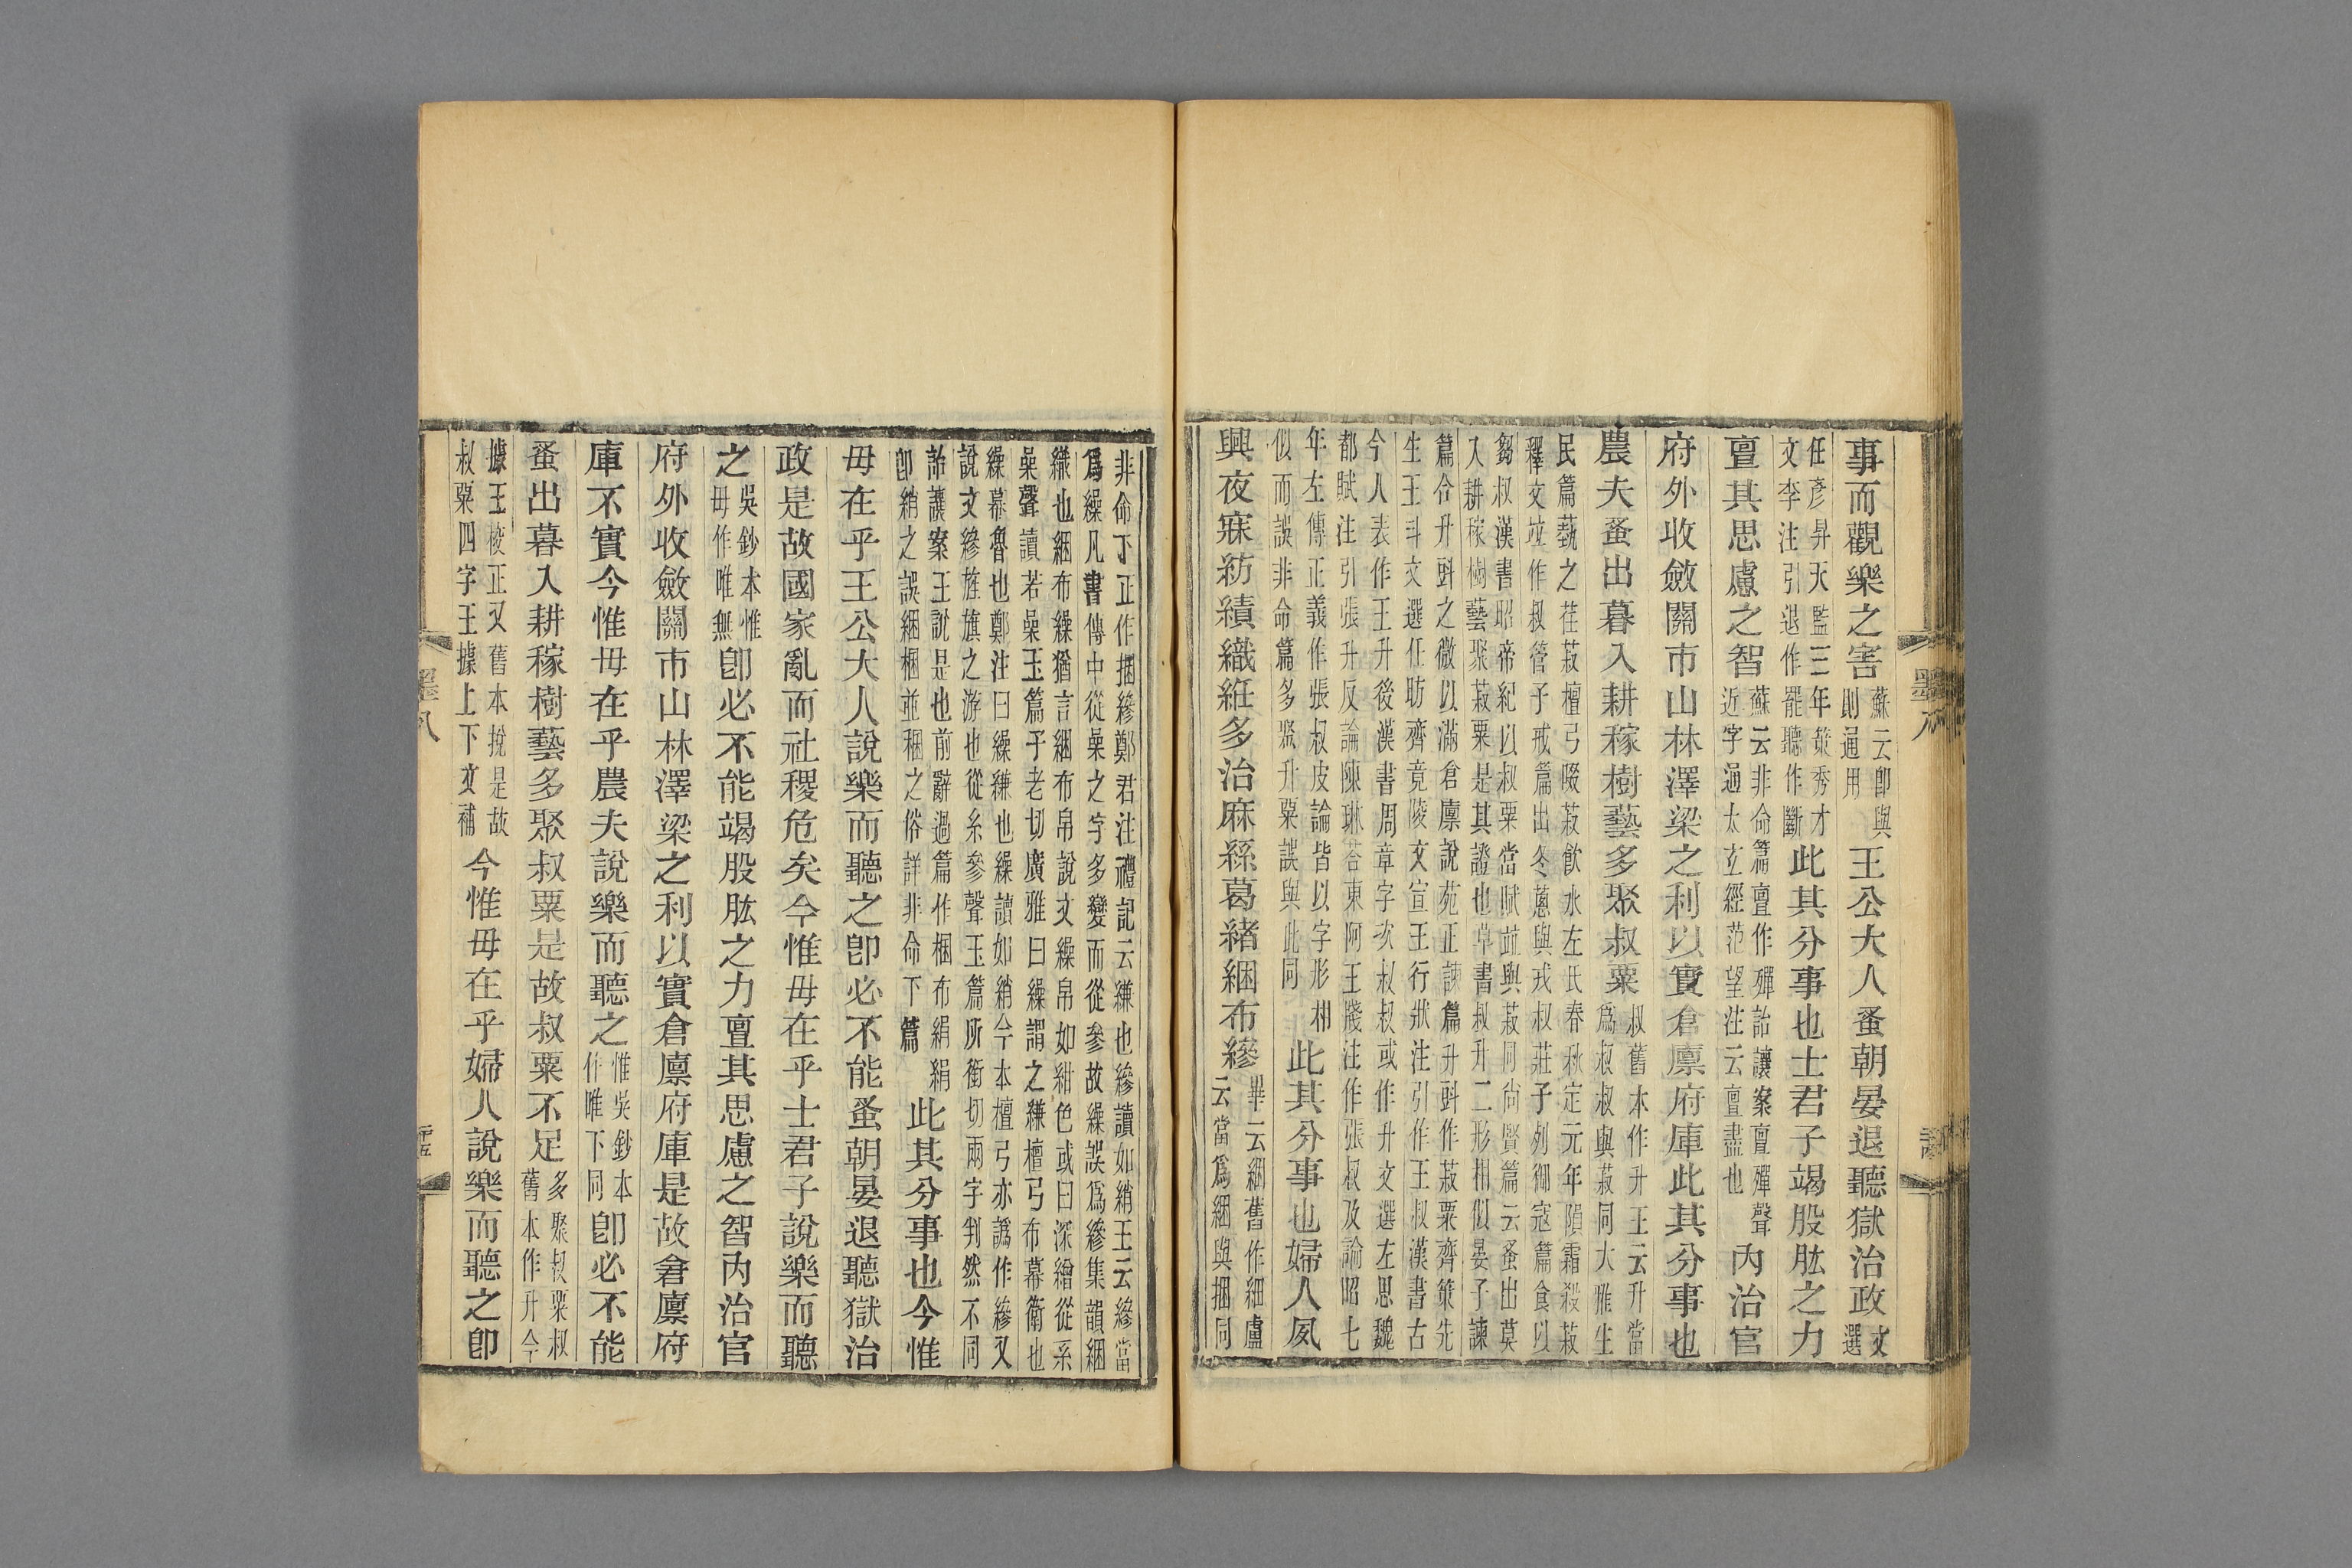 事而觀樂之害蘇云卽與
則通用王公大人蚤朝晏退聽獄治政文
選
任彥昇天監三年策秀才
文李注引退作罷聽作斷此其分事也士君子竭股肱之力
亶其思慮之智蘇云非命篇亶作殫詒讓案亶殫聲
近字通太玄經范望注云亶盡也內治官
府外收斂關市山林澤梁之利以實倉廩府庫此其分事也
農夫蚤出暮入耕稼樹藝多聚叔粟叔舊本作升王云升當
爲叔叔與菽同大雅生
民篇蓺之荏菽檀弓啜菽飮水左氏春秋定元年隕霜殺菽
釋文竝作叔管子戒篇出冬蔥與戎叔莊子列御寇篇食以
芻叔漢書昭帝紀以叔粟當賦竝與菽同尙賢篇云蚤出莫
入耕稼樹藝聚菽粟是其證也草書叔升二形相似晏子諫
篇合升㪷之微以滿倉廩說苑正諫篇升㪷作菽粟齊策先
生王斗文選任昉齊竟陵文宣王行狀注引作王叔漢書古
今人表作王升後漢書周章字次叔叔或作升文選左思魏
都賦注引張升反論陳琳荅東阿王牋注作張叔及論昭七
年左傳正義作張叔皮論皆以字形相
似而誤非命篇多聚升粟誤與此同此其分事也婦人夙
興夜寐紡績織絍多治麻絲葛緒綑布縿畢云綑舊作細盧
云當爲綑與捆同
墨八
非命下正作捆縿鄭君注禮記云縑也縿讀如綃王云縿當
爲繰凡書傳中從喿之字多變而從參故繰誤爲縿集韻綑
織也綑布繰猶言綑布帛說文繰帛如紺色或曰深繒從糸
喿聲讀若喿玉篇子老切廣雅曰繰謂之縑檀弓布幕衞也
繰幕魯也鄭注曰繰縑也繰讀如綃今本檀弓亦譌作縿又
說文縿旌旗之游也從糸參聲玉篇所銜切兩字判然不同
詒讓案王說是也前辭過篇作梱布絹絹
卽綃之誤綑梱並稇之俗詳非命下篇此其分事也今惟
毋在乎王公大人說樂而聽之卽必不能蚤朝晏退聽獄治
政是故國家亂而社稷危矣今惟毋在乎士君子說樂而聽
之吳鈔本惟
毋作唯無卽必不能竭股肱之力亶其思慮之智內治官
府外收斂關市山林澤梁之利以實倉廩府庫是故倉廩府
庫不實今惟毋在乎農夫說樂而聽之惟吳鈔本
作唯下同卽必不能
蚤出暮入耕稼樹藝多聚叔粟是故叔粟不足多聚叔粟叔
舊本作升今
據王校正又舊本挩是故
叔粟四字王據上下文補今惟毋在乎婦人說樂而聽之卽
墨八
二十五